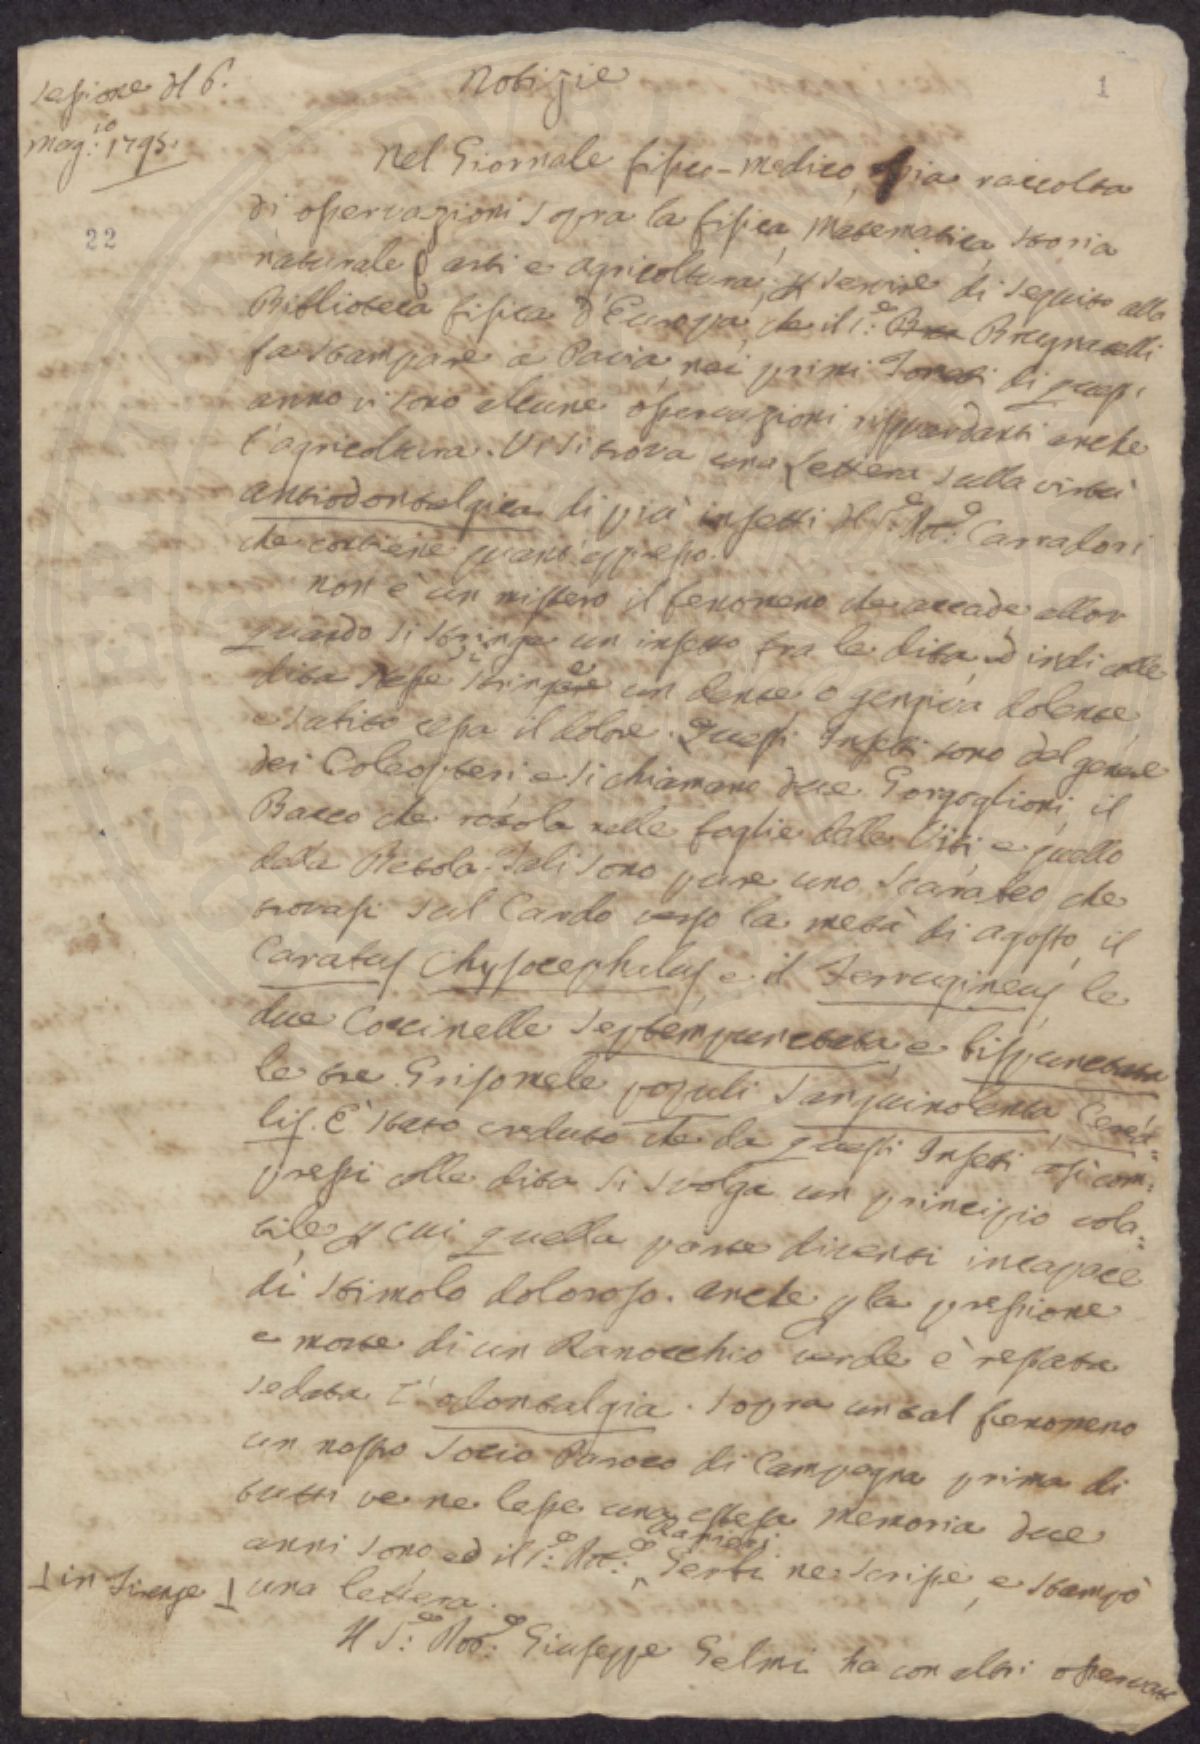 Notizie
1
Sessione del 6.
Mag.io 1795.
22
Nel Giornale fisico-medico, ossia raccolta
di osservazioni sopra la fisica, Matematica, storia
naturale, arti e agricoltura, p servire di seguito alla
Biblioteca fisica d'Europa, che il S.e Brugnatelli
fa stampare a Pavia, nei primi Tometti di quest'
anno vi sono alcune osservazioni risguardanti anche
l'agricoltura. Vi si trova una Lettera sulla virtù
antiodontalgica di più insetti del S.e Dott.e Carradori
che contiene quant'appresso.
Non è un mistero il fenomeno che accade allor
quando si stringe un insetto tra le dita, ed indi colle
dita stesse stringere un dente o gengiva dolente,
e subito cessa il dolore. Questi Insetti sono del genere
dei Coleopteri, e si chiamano due Gorgoglioni, il
Bacco che rotola nelle foglie delle Viti, e quello
della Betola. Tali sono pure uno Scarabeo che
trovasi sul Cardo verso la metà di agosto, il
Carabus Chrysocephalus, e il Ferrugineus, le
due Coccinelle Septempunctata, e bispunctata
le tre Grisomele populi Sanguinolenta, Cerea=
lis. È stato creduto che da questi Insetti così com=
pressi colle dita si svolga un principio vola=
tile, p cui quella parte diventi incapace
di stimolo doloroso. Anche p la pressione
e morte di un Ranocchio verde è restata
sedata l'odontalgia. Sopra un tal fenomeno
un nostro Socio Paroco di Campagna prima di
tutti ve ne lesse una estesa memoria due
anni sono, ed il S.e Dott.e Ranieri Gerbi ne scrisse, e stampò
⊥ in Firenze ⊥ una lettera.
Il S.e Dott.e Giuseppe Gelmi ha con altri osservato